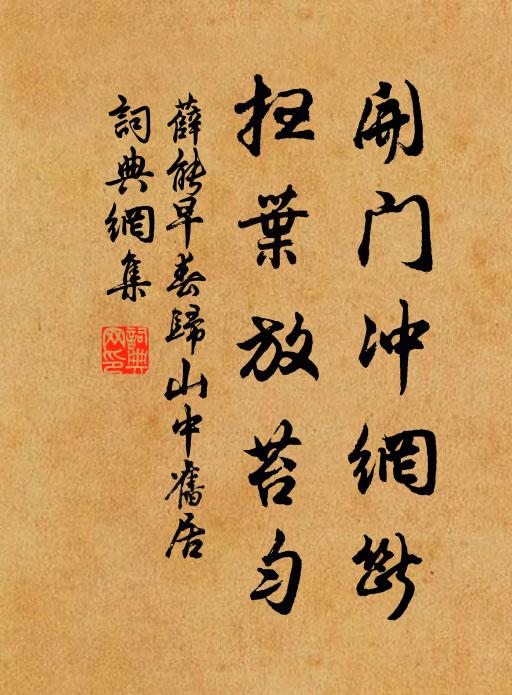 開門冲網斷
掃葉放苔勻
薛能早春歸山中舊居
詞典網集
詞典網印